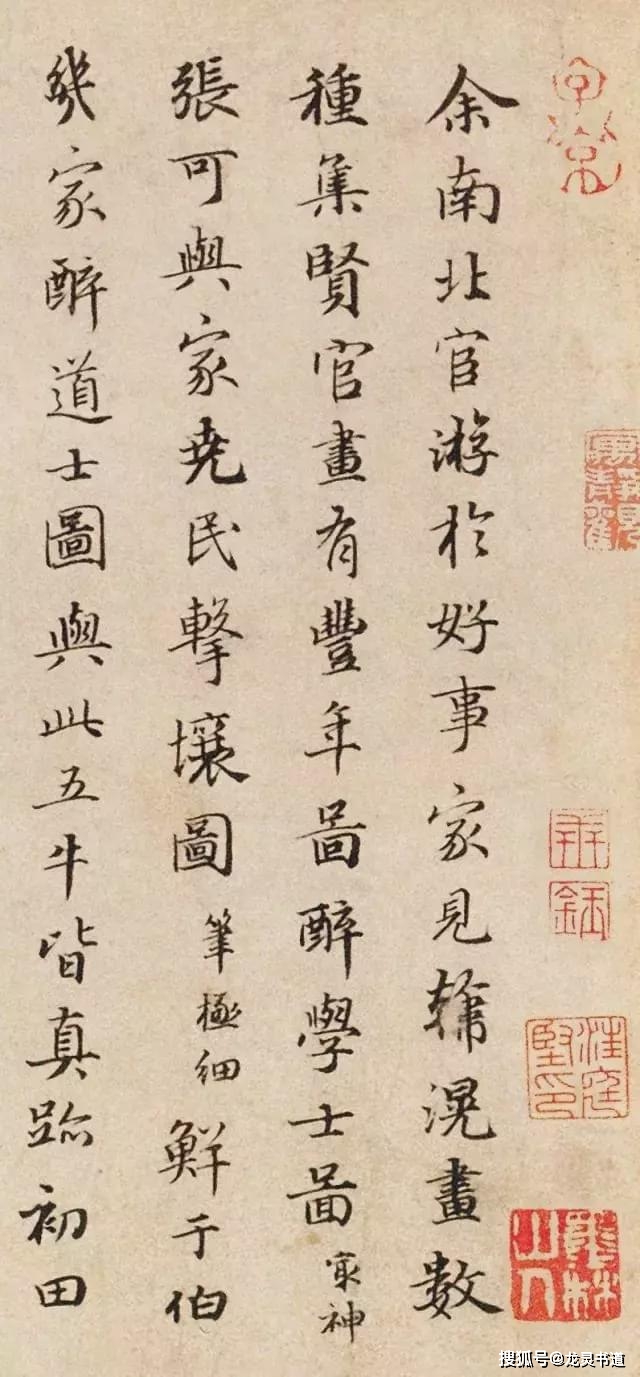 余南北官游於好事家見韓滉畫數
種集賢官畫有豐年啚醉學士啚冣神
張可與家堯民擊壤圖筆極細鮮于伯
幾家醉道士圖與此五牛皆真跡初田
墨林山人
搜狐号@龙灵书道